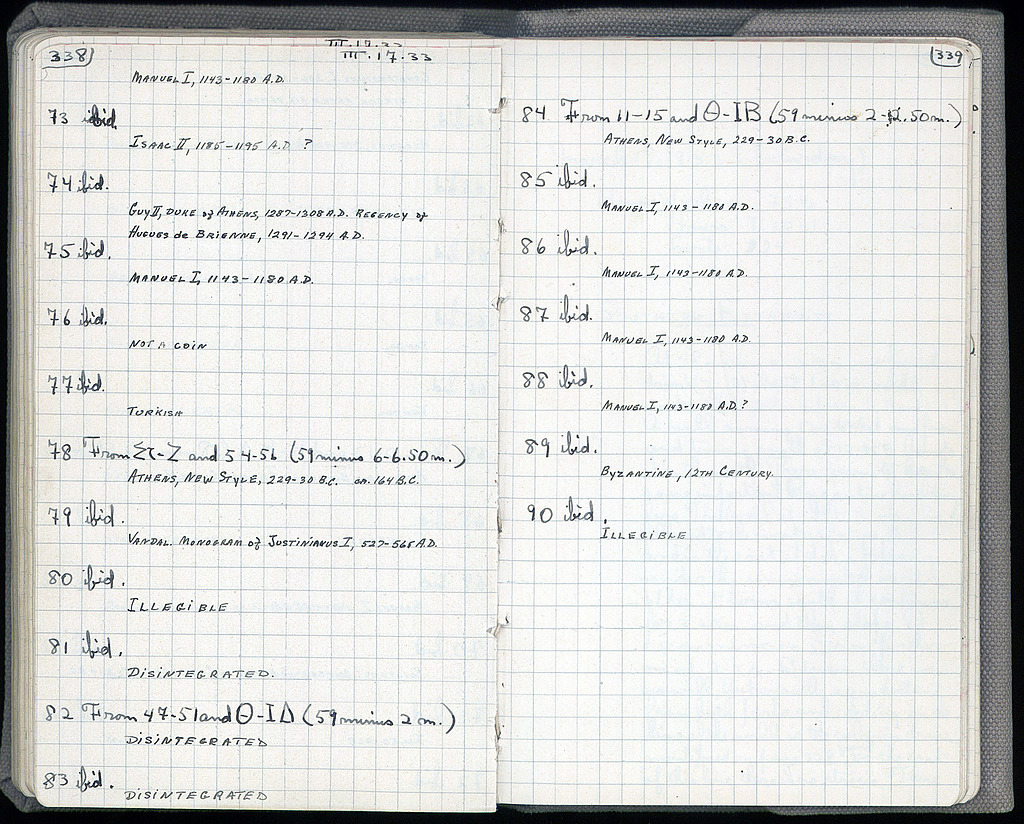 338
III.17.33
III.17.33
MANUEL I, 1143-1180 A.D.
73 ibid.
ISAAC II, 1185-1195 A.D. ?
74 ibid.
GUY II, DUKE of ATHENS, 1287-1308 A.D. REGENCY of
HUGUES de BRIENNE, 1291-1294 A.D.
75 ibid.
MANUEL I, 1143-1180 A.D.
76 ibid.
NOT A COIN
77 ibid.
TURKISH
78 From Στ-Ζ and 54-56 (59 minus 6-6.50m.)
ATHENS, NEW STYLE, 229-30 B.C. ca. 164 B.C.
79 ibid.
VANDAL. MONOGRAM of JUSTINIANUS I, 527-565 A.D.
80 ibid.
ILLEGIBLE
81 ibid.
DISINTEGRATED.
82 From 47-51 and Θ-ΙΔ (59 minus 2 m.)
DISINTEGRATED
83 ibid.
DISINTEGRATED
339
84 From 11-15 and Θ-ΙΒ (59 minus 2-2.50m.)
ATHENS, NEW STYLE, 229-30 B.C.
85 ibid.
MANUEL I, 1143-1180 A.D.
86 ibid.
MANUEL I, 1143-1180 A.D.
87 ibid.
MANUEL I, 1143-1180 A.D.
88 ibid.
MANUEL I, 1143-1180 A.D.?
89 ibid.
BYZANTINE, 12TH CENTURY.
90 ibid.
ILLEGIBLE